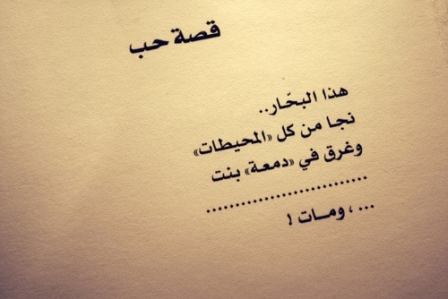 قصة حب
هذا البحّار..
نجا من كل «المحيطات»
وغرق في «دمعة» بنت
..............................
... ، ومـات !